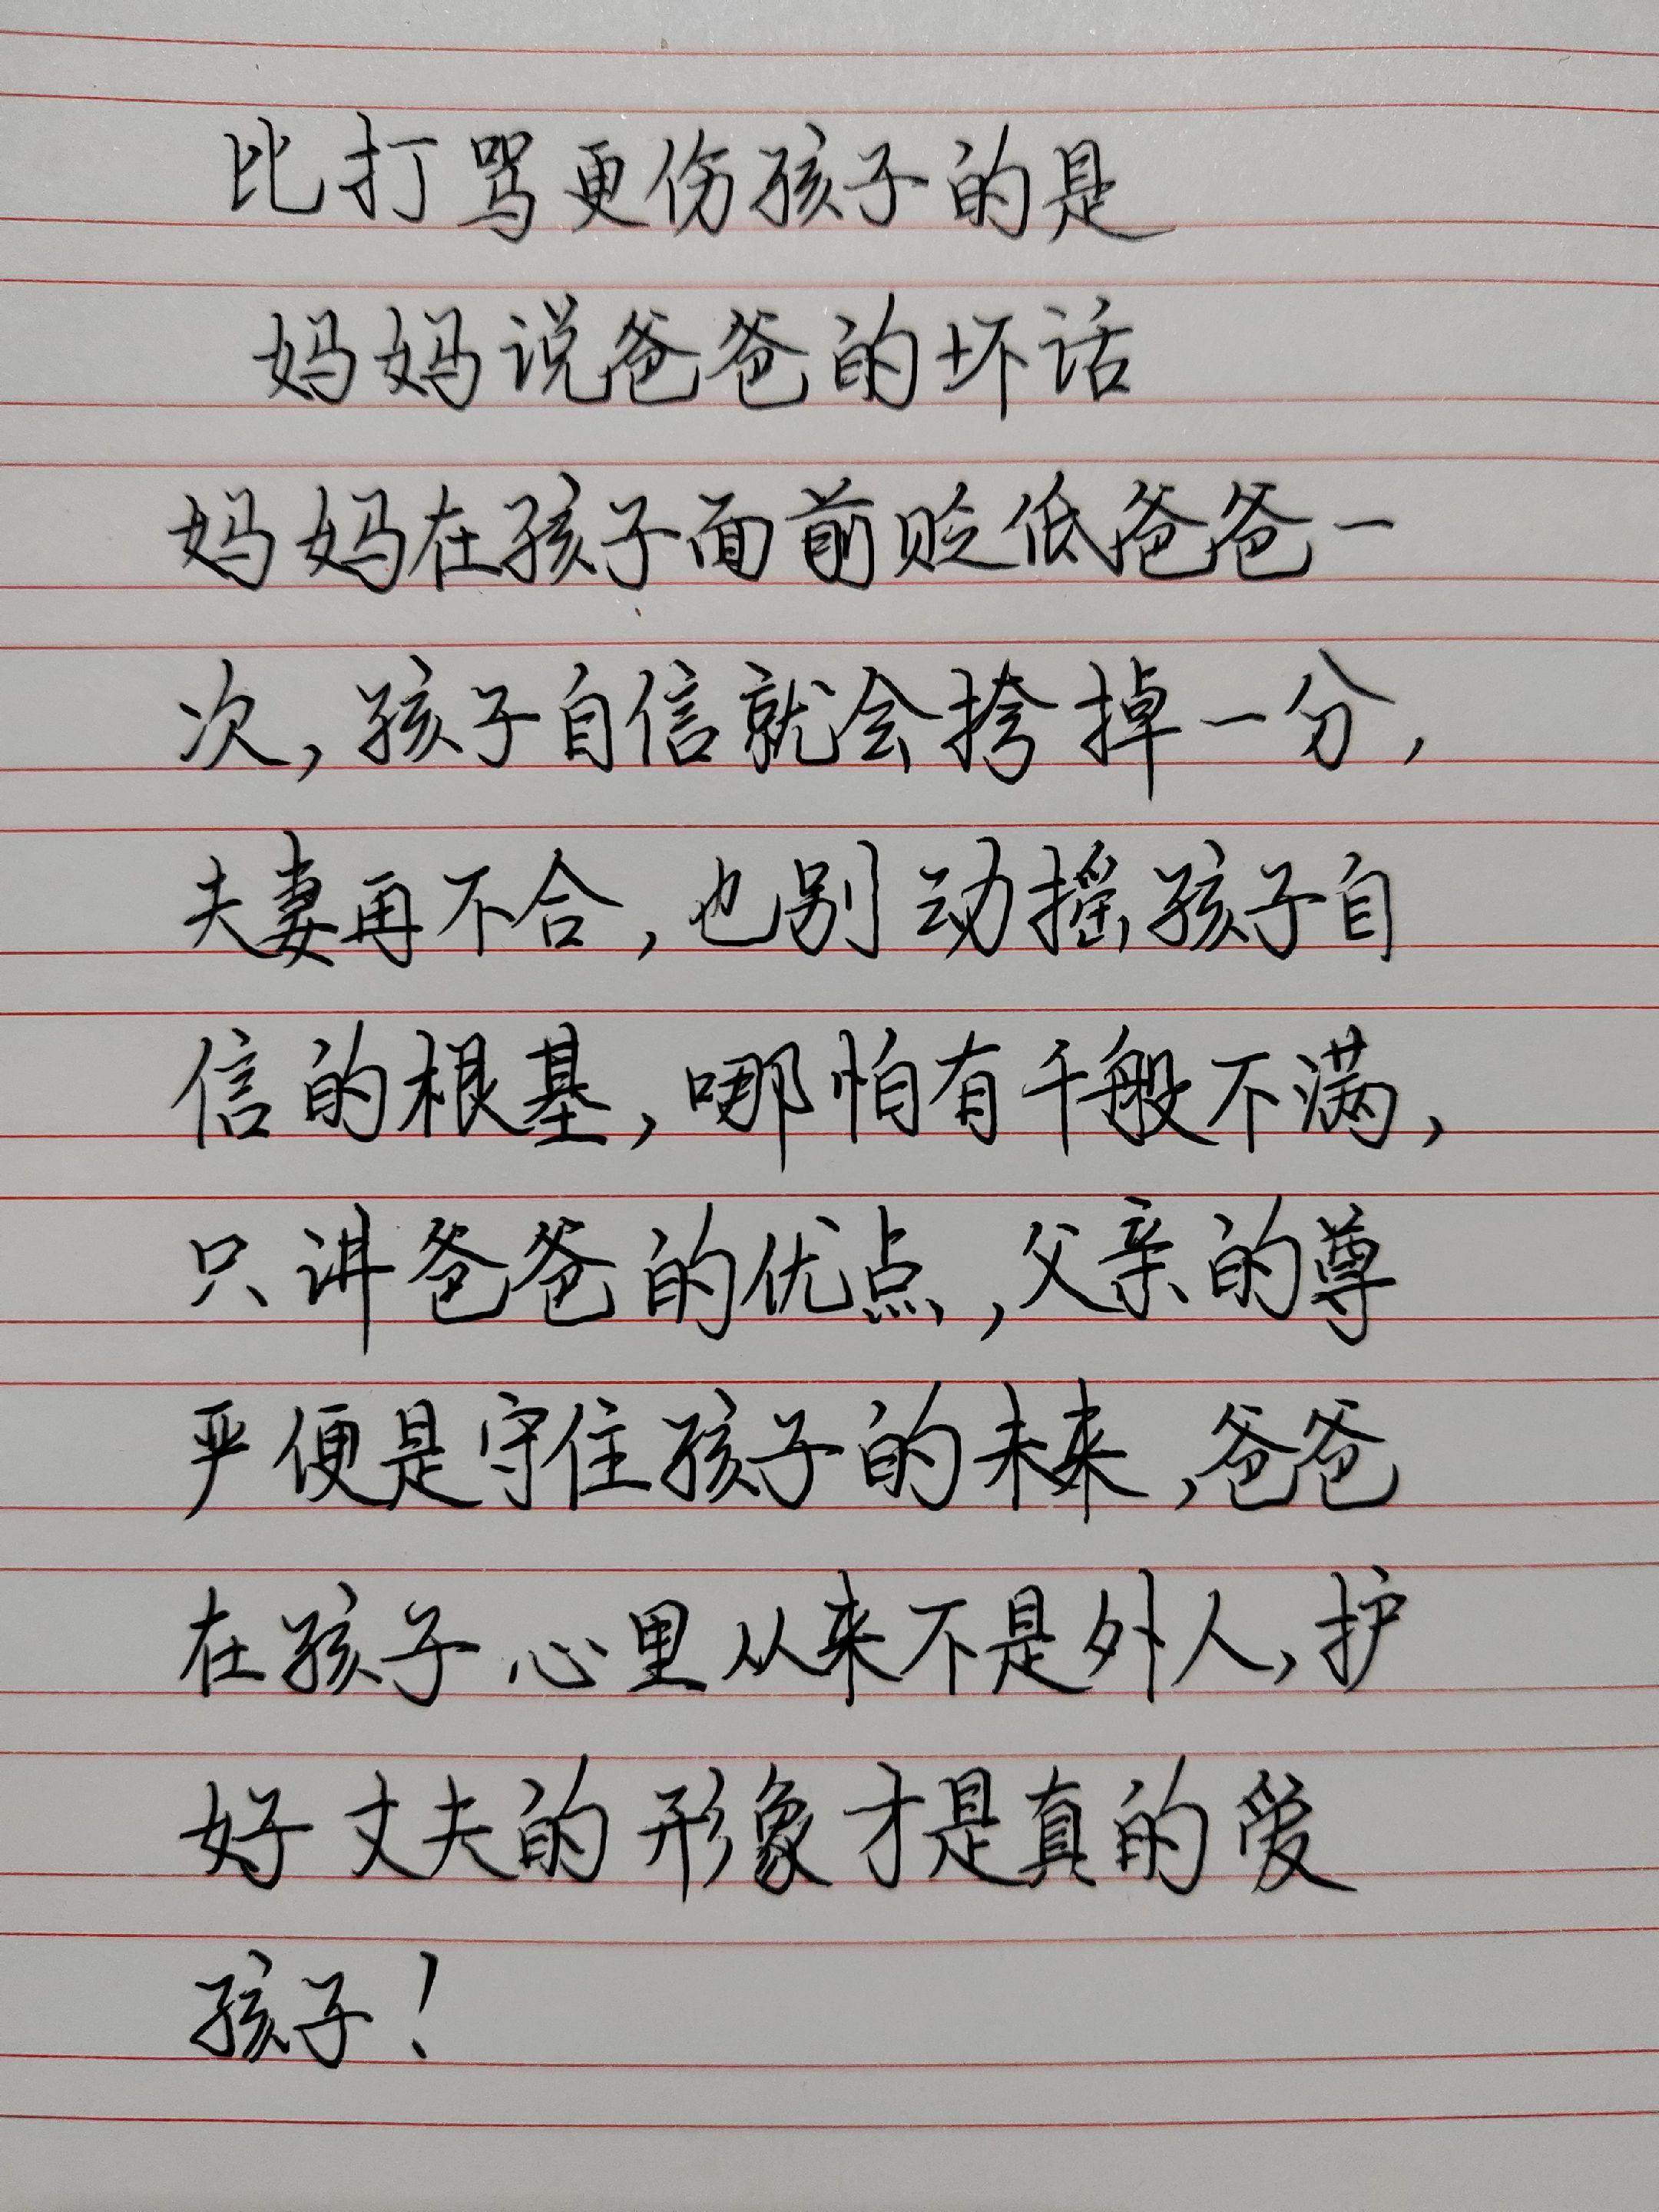 比打骂更伤孩子的是
妈妈说爸爸的坏话
妈妈在孩子面前贬低爸爸一
次,孩子自信就会挎掉一分,
夫妻再不合,也别动摇孩子自
信的根基,哪怕有千般不满,
只讲爸爸的优点,父亲的尊
严便是守住孩子的未来,爸爸
在孩子心里从来不是外人,护
好丈夫的形象才是真的爱
孩子!